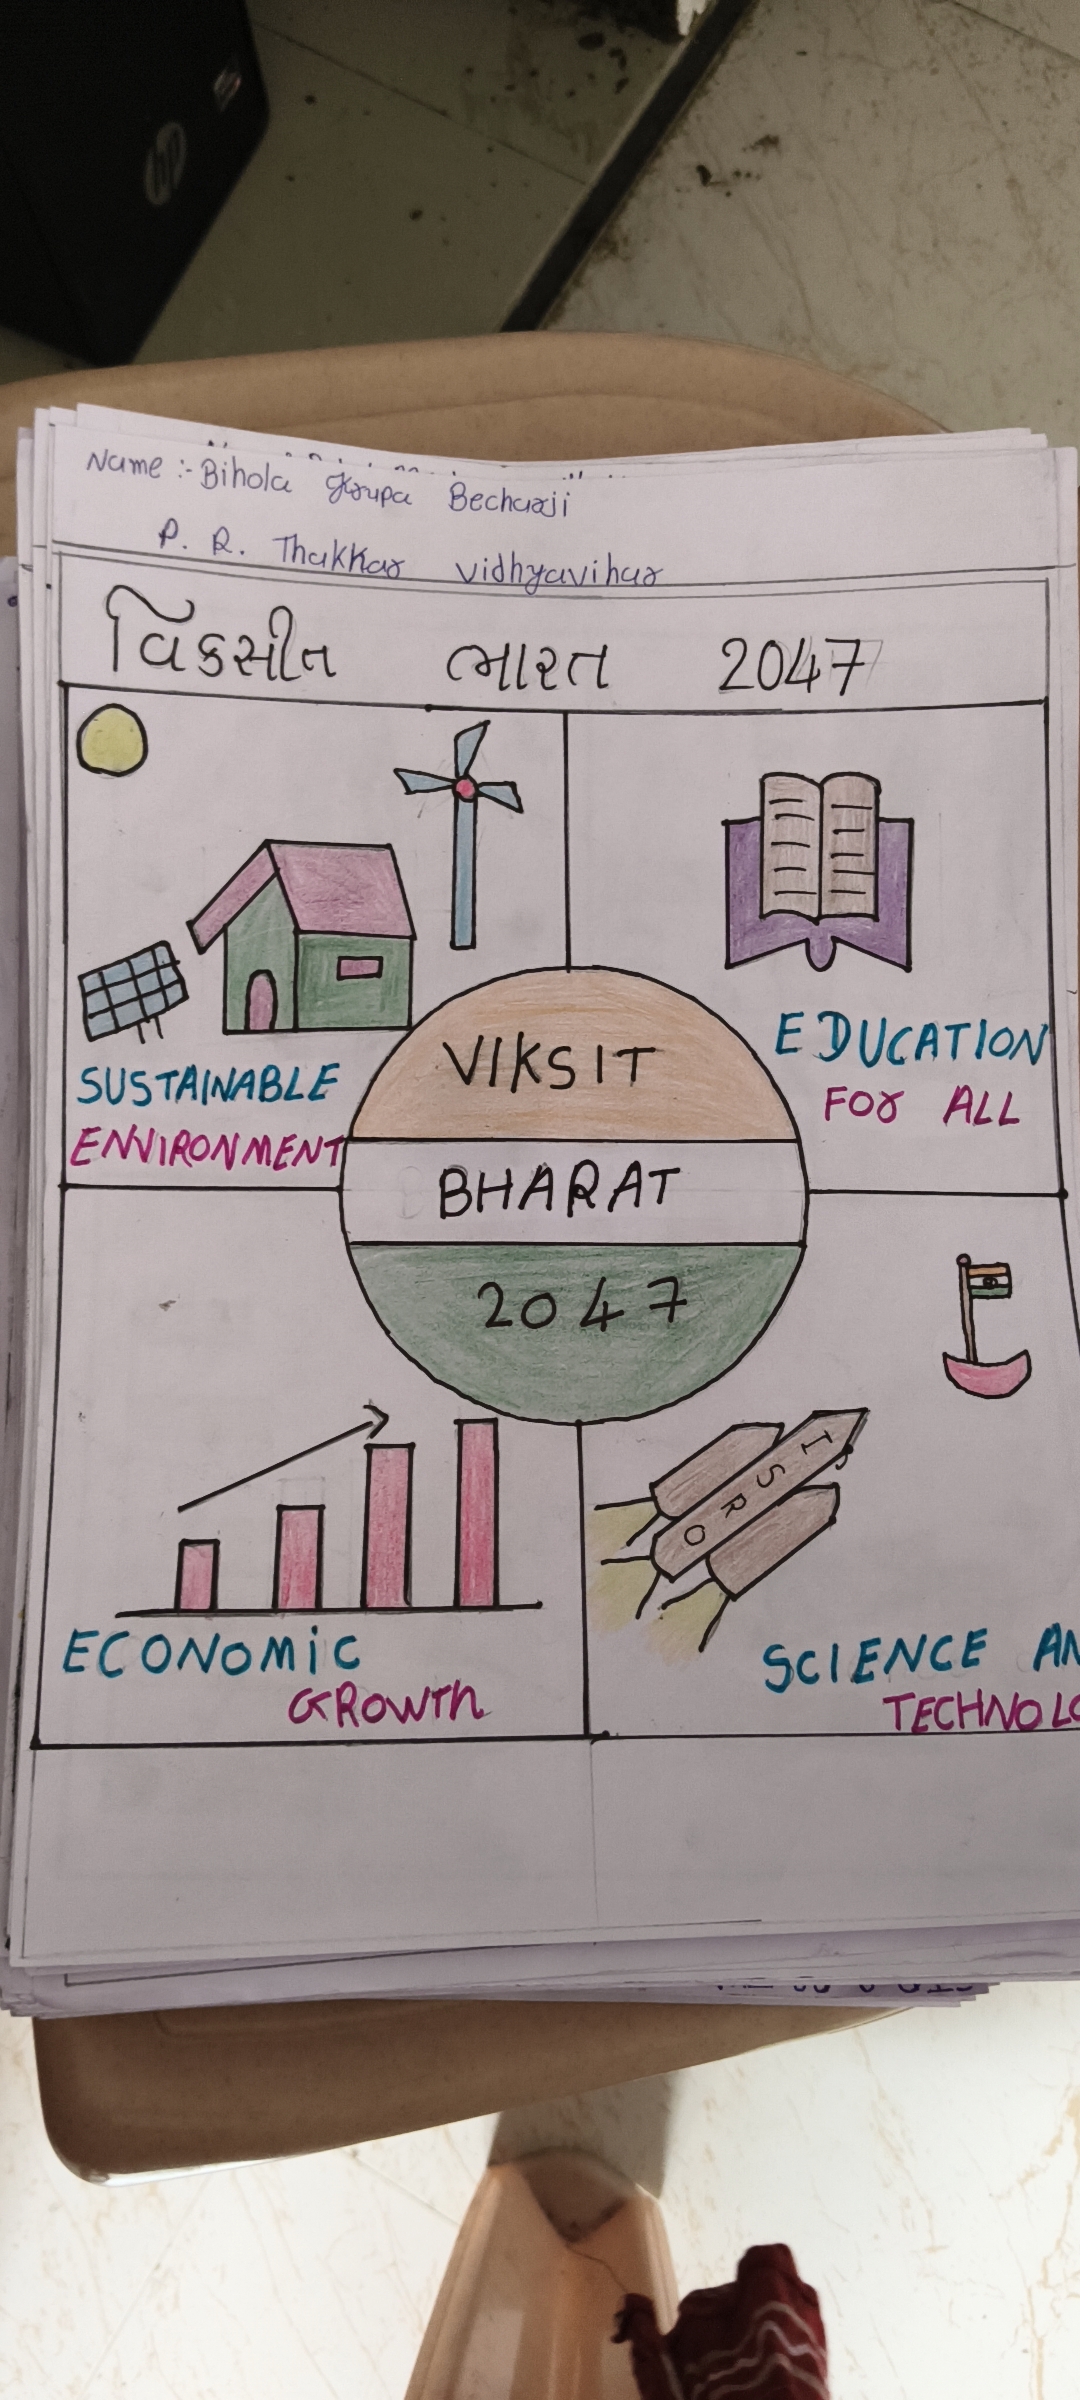 hp
Name :- Bihola Krupa Becharji
P. R. Thakkar vidhyavihar
વિકસીત ભારત 2047
SUSTAINABLE
ENVIRONMENT
EDUCATION
FOR ALL
VIKSIT
BHARAT
2047
ISRO
ECONOMIC
GROWTH
SCIENCE AN
TECHNOLO